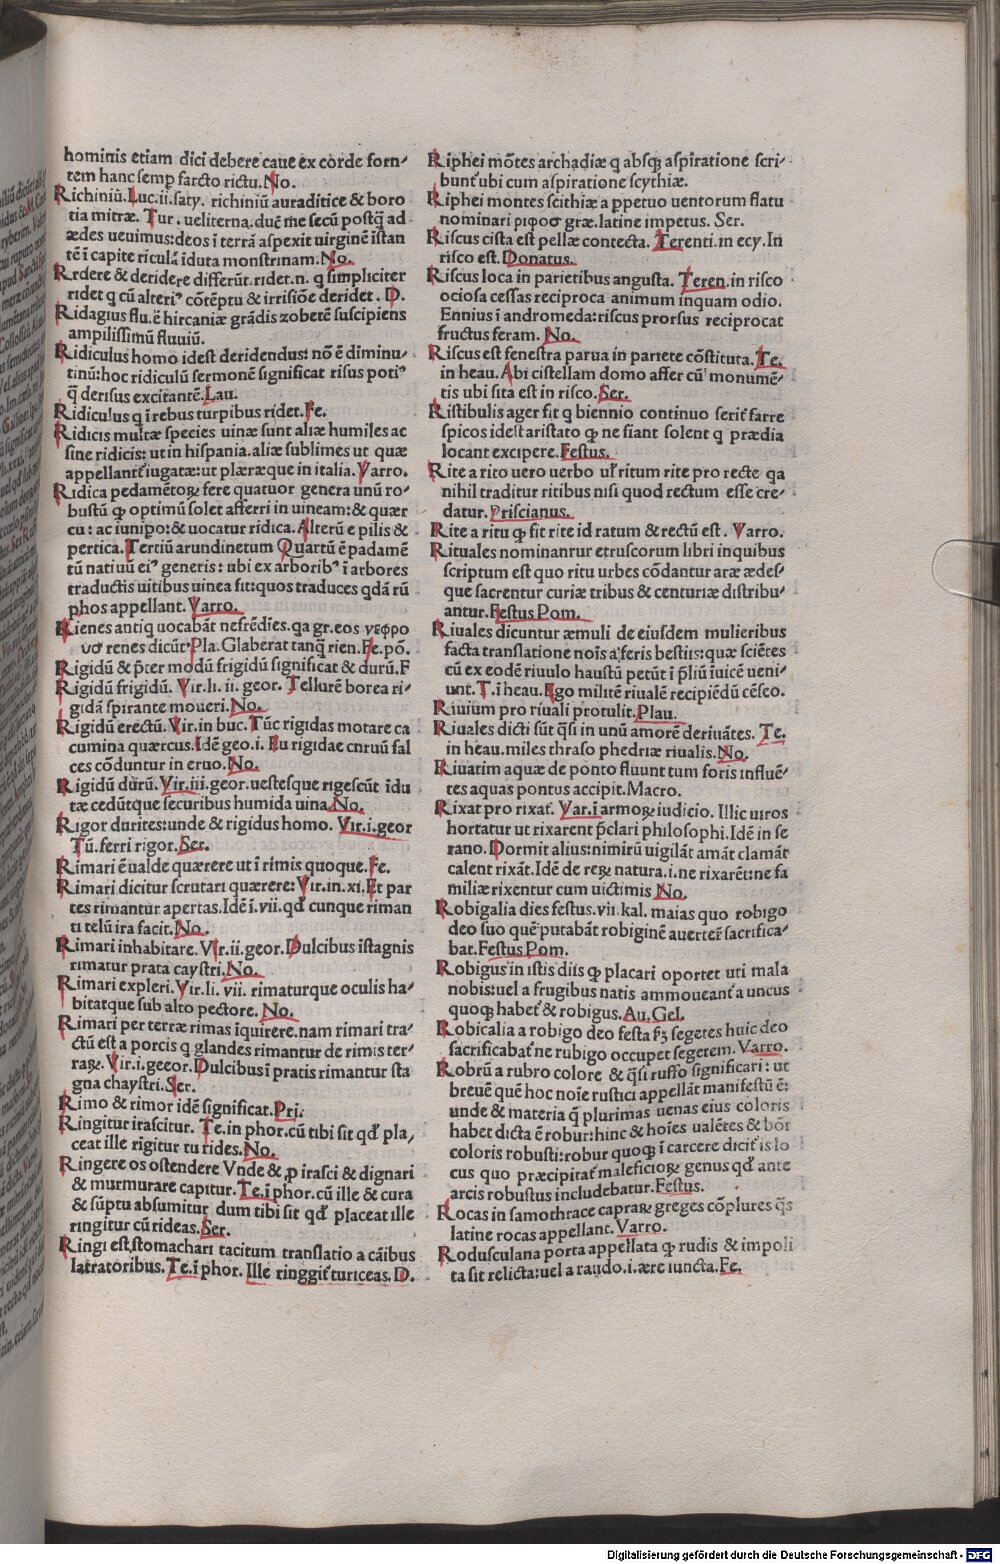 hominis etiam dici debere caue ex corde forn⸗
tem hanc semꝑ farcto rictu. No.
Richiniū. Luc. ii. saty. richiniū auraditice & boro
tia mitræ. Tur. ueliterna. ducē me secū postq̄ ad
ædes ueuimus: deos ī terrā aspexit uirginē istan
tē ī capite riculā iduta monstrinam. No.
Rrdere & deridere differūt. ridet. n. q simpliciter
ridet q cū alteriꝰ cōtēptu & irrisiōe deridet. D.
Ridagius flu. ē hircaniæ grādis zobetē suscipiens
ampilissimū fluuiū.
Ridiculus homo idest deridendus: nō ē diminu⸗
tinū: hoc ridiculū sermonē significat risus potiꝰ
q̄ derisus excitantē. Lau.
Ridiculus q ī rebus turpibus ridet. Fe.
Ridicis multæ species uinæ sunt aliæ humiles ac
sine ridicis: ut in hispania. aliæ sublimes ut quæ
appellant̄ iugatæ: ut plæræque in italia. Varro.
Ridica pedamētoꝝ fere quatuor genera unū ro⸗
bustū ꝙ optimū solet afferri in uineam: & quær
cu: ac iunipo: & uocatur ridica. Alterū e pilis &
pertica. Tertiū arundinetum Quartū ē padamē
tū natiuū eiꝰ generis: ubi ex arboribꝰ ī arbores
traductis uitibus uinea fit: quos traduces qdā rū
phos appellant. Varro.
Rienes antiq uocabāt nefrēdies. qa gr. eos νεφρο
υσ renes dicūt. Pla. Glaberat tanq̄ rien. Fe. pō.
Rigidū & p̄ter modū frigidū significat & durū. F
Rigidū frigidū. Vir. li. ii. geor. Tellurē borea ri⸗
gidā spirante moueri. No.
Rigidū erectū. Vir. in buc. Tūc rigidas motare ca
cumina quærcus. Idē geo. i. Eu rigidae cnruū fal
ces cōduntur in eruo. No.
Rigidū durū. Vir. iii. geor. uestesque rigescūt idu
tæ cedūtque securibus humida uina. No.
Rigor durites: unde & rigidus homo. Vir. i. geor
Tū. ferri rigor. Ser.
Rimari ē ualde quærere ut ī rimis quoque. Fe.
Rimari dicitur scrutari quærere: Vir. in. xi. Et par
tes rimantur apertas. Idē ī. vii. qd̄ cunque riman
ti telū ira facit. No.
Rimari inhabitare. Vir. ii. geor. Dulcibus īstagnis
rimatur prata caystri. No.
Rimari expleri. Vir. li. vii. rimaturque oculis ha⸗
bitatque sub alto pectore. No.
Rimari per terræ rimas īquirere. nam rimari tra⸗
ctū est a porcis q glandes rimantur de rimis ter⸗
raꝝ. Vir. i. geeor. Dulcibus ī pratis rimantur sta
gna chaystri. Ser.
Rimo & rimor idē significat. Pri.
Ringitur irascitur. Te. in phor. cū tibi sit qd̄ pla,
ceat ille rīgitur tu rides. No.
Ringere os ostendere Vnde & ꝓ irasci & dignari
& murmurare capitur. Te. ī phor. cū ille & cura
& sūptu absumitur dum tibi sit qd̄ placeat ille
ringitur cū rideas. Ser.
Ringi est stomachari tacitum translatio a cāibus
latratoribus. Te. ī phor. Ille ringgit̄ turiceas. D.
Riphei mōtes archadiæ q absqꝫ aspiratione scri⸗
bunt̄ ubi cum aspiratione scythiæ.
Riphei montes scithiæ a ppetuo uentorum flatu
nominari ριφοσ græ. latine impetus. Ser.
Riscus cista est pellæ contecta. Terenti. in ecy. In
risco est. Donatus.
Riscus loca in parietibus angusta. Teren. in risco
ociosa cessas reciproca animum inquam odio.
Ennius ī andromeda: riscus prorsus reciprocat
fructus feram. No.
Riscus est fenestra parua in pariete cōstituta. Te.
in heau. Abi cistellam domo affer cū monumē⸗
tis ubi sita est in risco. Ser.
Ristibulis ager fit q biennio continuo serit̄ farre
spicos idest aristato ꝙ ne fiant solent q prædia
locant excipere. Festus.
Rite a rito uero uerbo ul̄ ritum rite pro recte qa
nihil traditur ritibus nisi quod rectum esse cre⸗
datur. Priscianus.
Rite a ritu ꝙ fit rite id ratum & rectū est. Varro.
Rituales nominanrur etruscorum libri inquibus
scriptum est quo ritu urbes cōdantur aræ ædes⸗
que sacrentur curiæ tribus & centuriæ distribu⸗
antur. Festus Pom.
Riuales dicuntur æmuli de eiusdem mulieribus
facta translatione nois a feris bestiis: quæ sciētes
cū ex eodē riuulo haustū petūt ī p̄liū īuicē ueni⸗
unt. T. ī heau. Ego militē riualē recipiēdū cēseo.
Riuium pro riuali protulit. Plau.
Riuales dicti sūt q̄si in unū amorē deriuātes. Te.
in heau. miles thraso phedriæ riualis. No.
Riuatim aquæ de ponto fluunt tum foris influē⸗
tes aquas pontus accipit. Macro.
Rixat pro rixat̄. Var. ī armoꝝ iudicio. Illic uiros
hortatur ut rixarent p̄clari philosophi. Idē in se
rano. Dormit alius: nimirū uigilāt amāt clamāt
calent rixāt. Idē de reꝝ natura. i. ne rixarēt: ne fa
miliæ rixentur cum uictimis No.
Robigalia dies festus. vii. kal. maias quo robigo
deo suo quē putabāt robiginē auertere sacrifica⸗
bat. Festus Pom.
Robigus in istis diis ꝙ placari oportet uti mala
nobis: uel a frugibus natis ammoueant̄ a uncus
quoqꝫ habet̄ & robigus. Au. Gel.
Robicalia a robigo deo festa pꝫ segetes huic deo
sacrificabāt ne rubigo occupet segetem. Varro.
Robrū a rubro colore & q̄si ruffo significari: ut
breuē quē hoc noīe rustici appellāt manifestū ē:
unde & materia q̄ plurimas uenas eius coloris
habet dicta ē robur: hinc & hoīes ualētes & boī
coloris robusti: robur quoqꝫ ī carcere dicit̄ is lo
cus quo præcipitat̄ maleficioꝝ genus qd̄ ante
arcis robustus includebatur. Festus.
Rocas in samothrace capraꝝ greges cōplures q̄s
latine rocas appellant. Varro.
Rodusculana porta appellata ꝙ rudis & impoli
ta sit relicta: uel a raudo. i. ære iuncta. Fe.
Digitalisierung gefördert durch die Deutsche Forschungsgemeinschaft - DFG